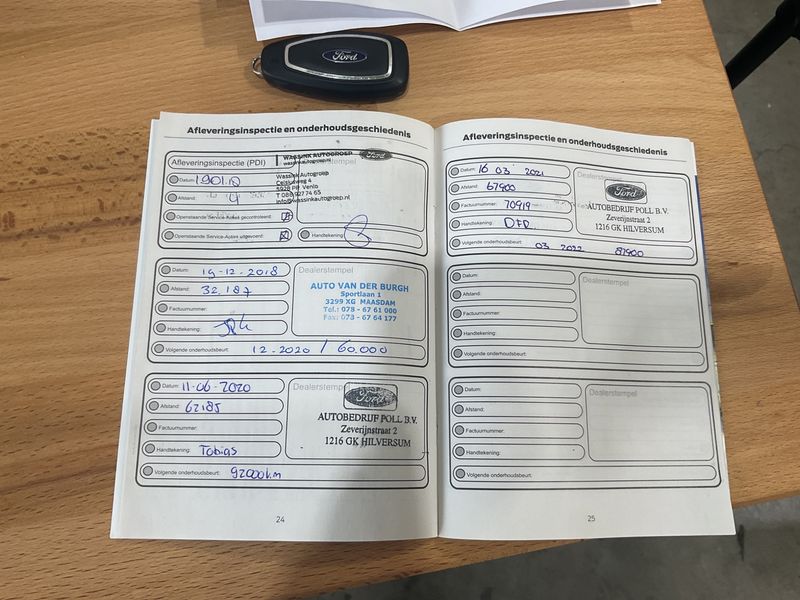 Ford
Afleveringsinspectie en onderhoudsgeschiedenis
Afleveringsinspectie (PDI)
WASSINK AUTOGROEP
wassinkautogroep.nl
Ford
Dealerstempel
Datum:
Wassink Autogroep
Celsiusweg 4
5928 PR Venlo
T 088 927 74 65
info@wassinkautogroep.nl
Afstand: 4
Openstaande Service-Acties gecontroleerd:
Openstaande Service-Acties uitgevoerd:
Handtekening:
Datum: 19-12-2018
Afstand: 32.187
Factuurnummer:
Handtekening:
Dealerstempel
AUTO VAN DER BURGH
Sportlaan 1
3299 XG MAASDAM
Tel.: 078 - 67 61 000
Fax: 078 - 67 64 177
Volgende onderhoudsbeurt: 12-2020 / 60.000
Datum: 11-06-2020
Afstand: 62185
Factuurnummer:
Handtekening: Tobias
Dealerstempel
Ford
AUTOBEDRIJF POLL B.V.
Zeverijnstraat 2
1216 GK HILVERSUM
Volgende onderhoudsbeurt: 92000km
24
Afleveringsinspectie en onderhoudsgeschiedenis
Datum: 16 03 2021
Afstand: 67900
Factuurnummer: 70919
Handtekening:
Dealerstempel
Ford
AUTOBEDRIJF POLL B.V.
Zeverijnstraat 2
1216 GK HILVERSUM
Volgende onderhoudsbeurt: 03 2022 87900
Datum:
Afstand:
Factuurnummer:
Handtekening:
Dealerstempel
Volgende onderhoudsbeurt:
Datum:
Afstand:
Factuurnummer:
Handtekening:
Dealerstempel
Volgende onderhoudsbeurt:
25